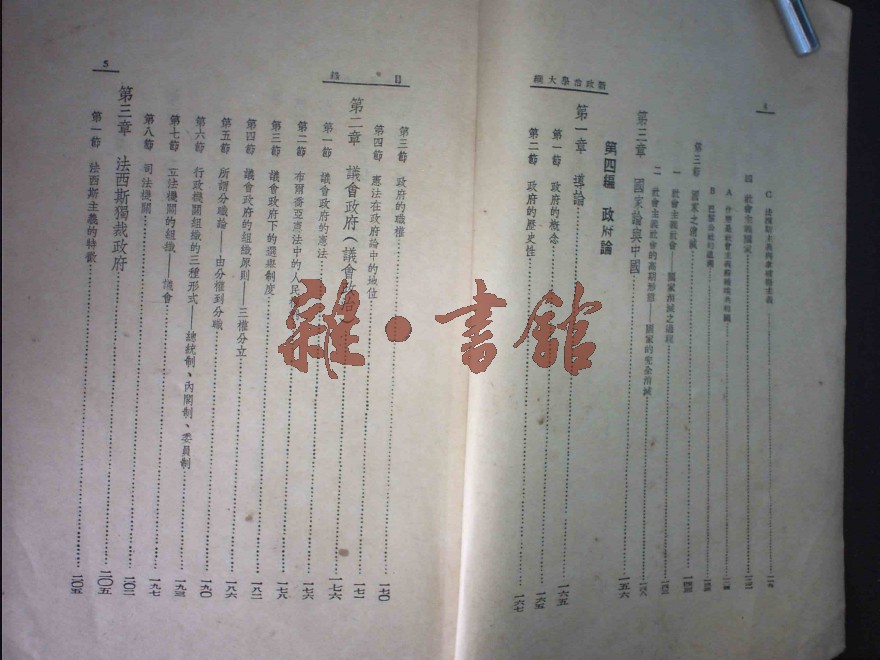 4
C 法西斯主義與希特勒主義
四 社會主義國家
第三節 國家之消滅
一 社會主義社會——國家消滅之過程
二 社會主義社會的高期形態——國家的完全消滅
第三章 國家論與中國 一五六
第四編 政府論
第一章 導論 一六五
第一節 政府的概念 一六五
第二節 政府的歷史性 一六七
新政治學大綱
目 錄
5
第三節 政府的職權 一七〇
第四節 憲法在政府論中的地位 一七二
第二章 議會政府(議會政治 一七六
第一節 議會政府的憲法 一七六
第二節 布爾喬亞憲法中的人民 一七六
第三節 議會政府下的選舉制度 一七八
第四節 議會政府的組織原則——三權分立 一八二
第五節 所謂分職論——由分權到分職 一八六
第六節 行政機關組織的三種形式——總統制、內閣制、委員制 一九〇
第七節 立法機關的組織——議會 一九三
第八節 司法機關 一九七
第三章 法西斯獨裁政府
第一節 法西斯主義的特徵 二〇五
雜·書館